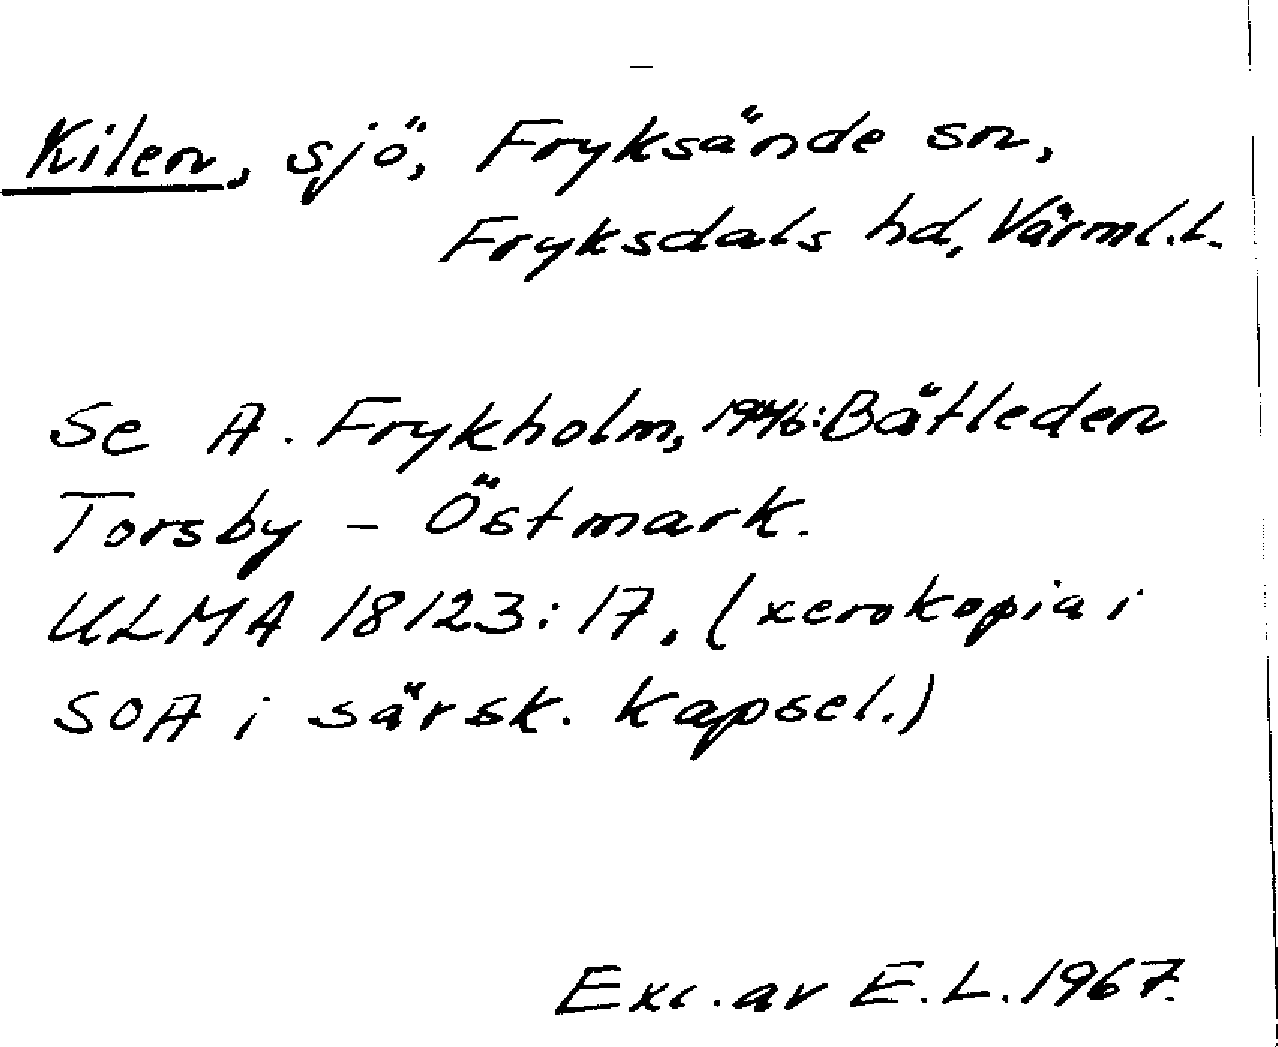 Kilen, sjö, Fryksände sn,
Fryksdals hd, Värml.l.
Se A. Frykholm, 1946: Båtleden
Torsby - Östmark.
ULMA 18123:17. (xerokopia i
SOA i särsk. kapsel.)
Exc. av E.L. 1967.